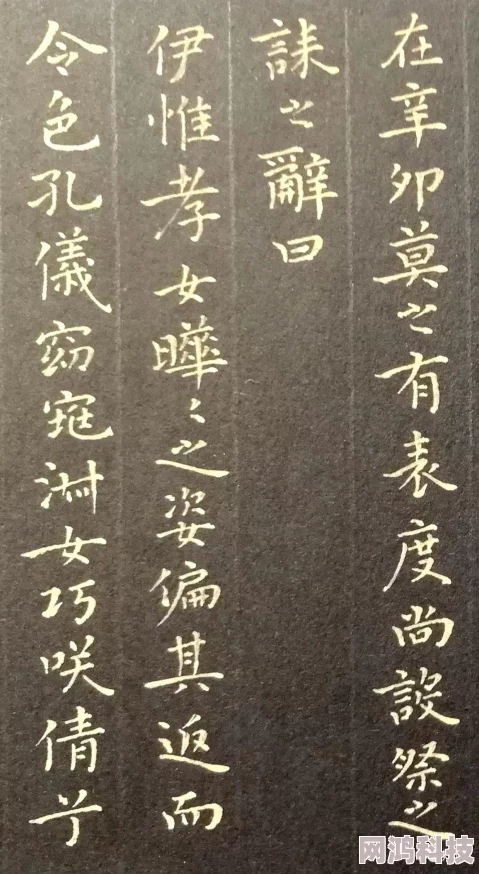 在辛卯莫之有表度尚設祭之
誄之辭曰
伊惟孝女曄〻之姿偏其返而
令色孔儀窈窕淑女巧咲倩兮
网鸿科技